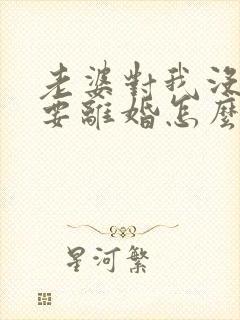 老婆對我沒
要離婚怎麼
星河繁